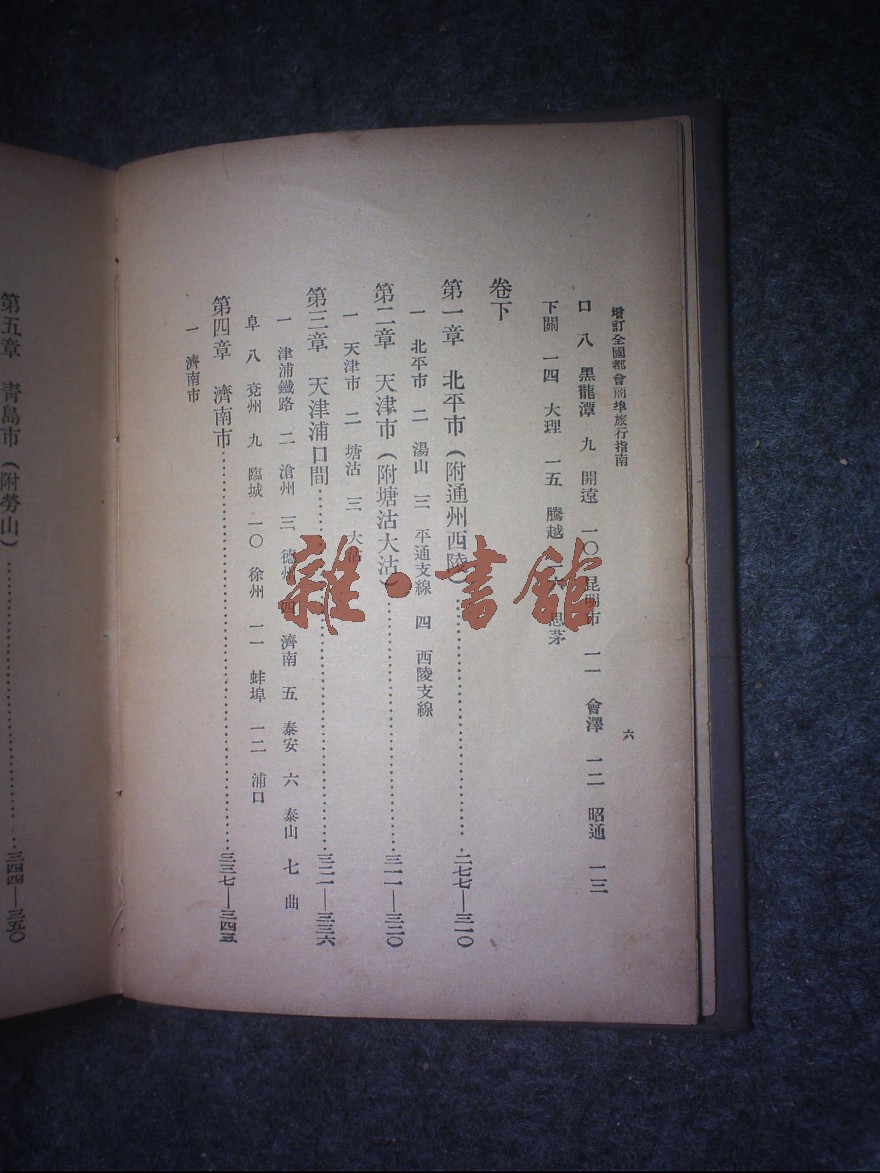 增訂全國都會商埠旅行指南
六
口 八 黑龍潭 九 開遠 一〇 昆明市 一一 會澤 一二 昭通 一三
下關 一四 大理 一五 騰越 一六 思茅
卷下
第一章 北平市(附通州西陵)⋯⋯⋯⋯二七七—三一〇
一 北平市 二 湯山 三 平通支線 四 西陵支線
第二章 天津市(附塘沽大沽)⋯⋯⋯⋯三一一—三二〇
一 天津市 二 塘沽 三 大沽
第三章 天津浦口間⋯⋯⋯⋯三二一—三三六
一 津浦鐵路 二 滄州 三 德州 四 濟南 五 泰安 六 泰山 七 曲
阜 八 兗州 九 臨城 一〇 徐州 一一 蚌埠 一二 浦口
第四章 濟南市⋯⋯⋯⋯三三七—三四三
一 濟南市
第五章 青島市(附勞山)⋯⋯⋯⋯三四四—三五〇
雜·書館